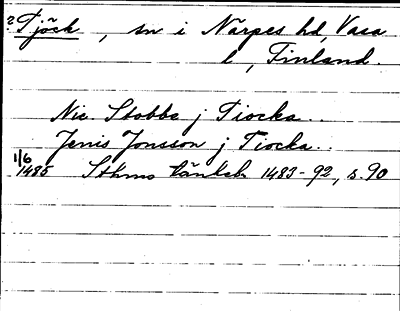 ? Tjöck, sn i Närpes hd, Vasa
l, Finland.
Nic. Stobbe j Tiocka..
Jenis Jonsson j Tiocka..
1/6 1485 Sthms tänkeb. 1483-92, s. 90